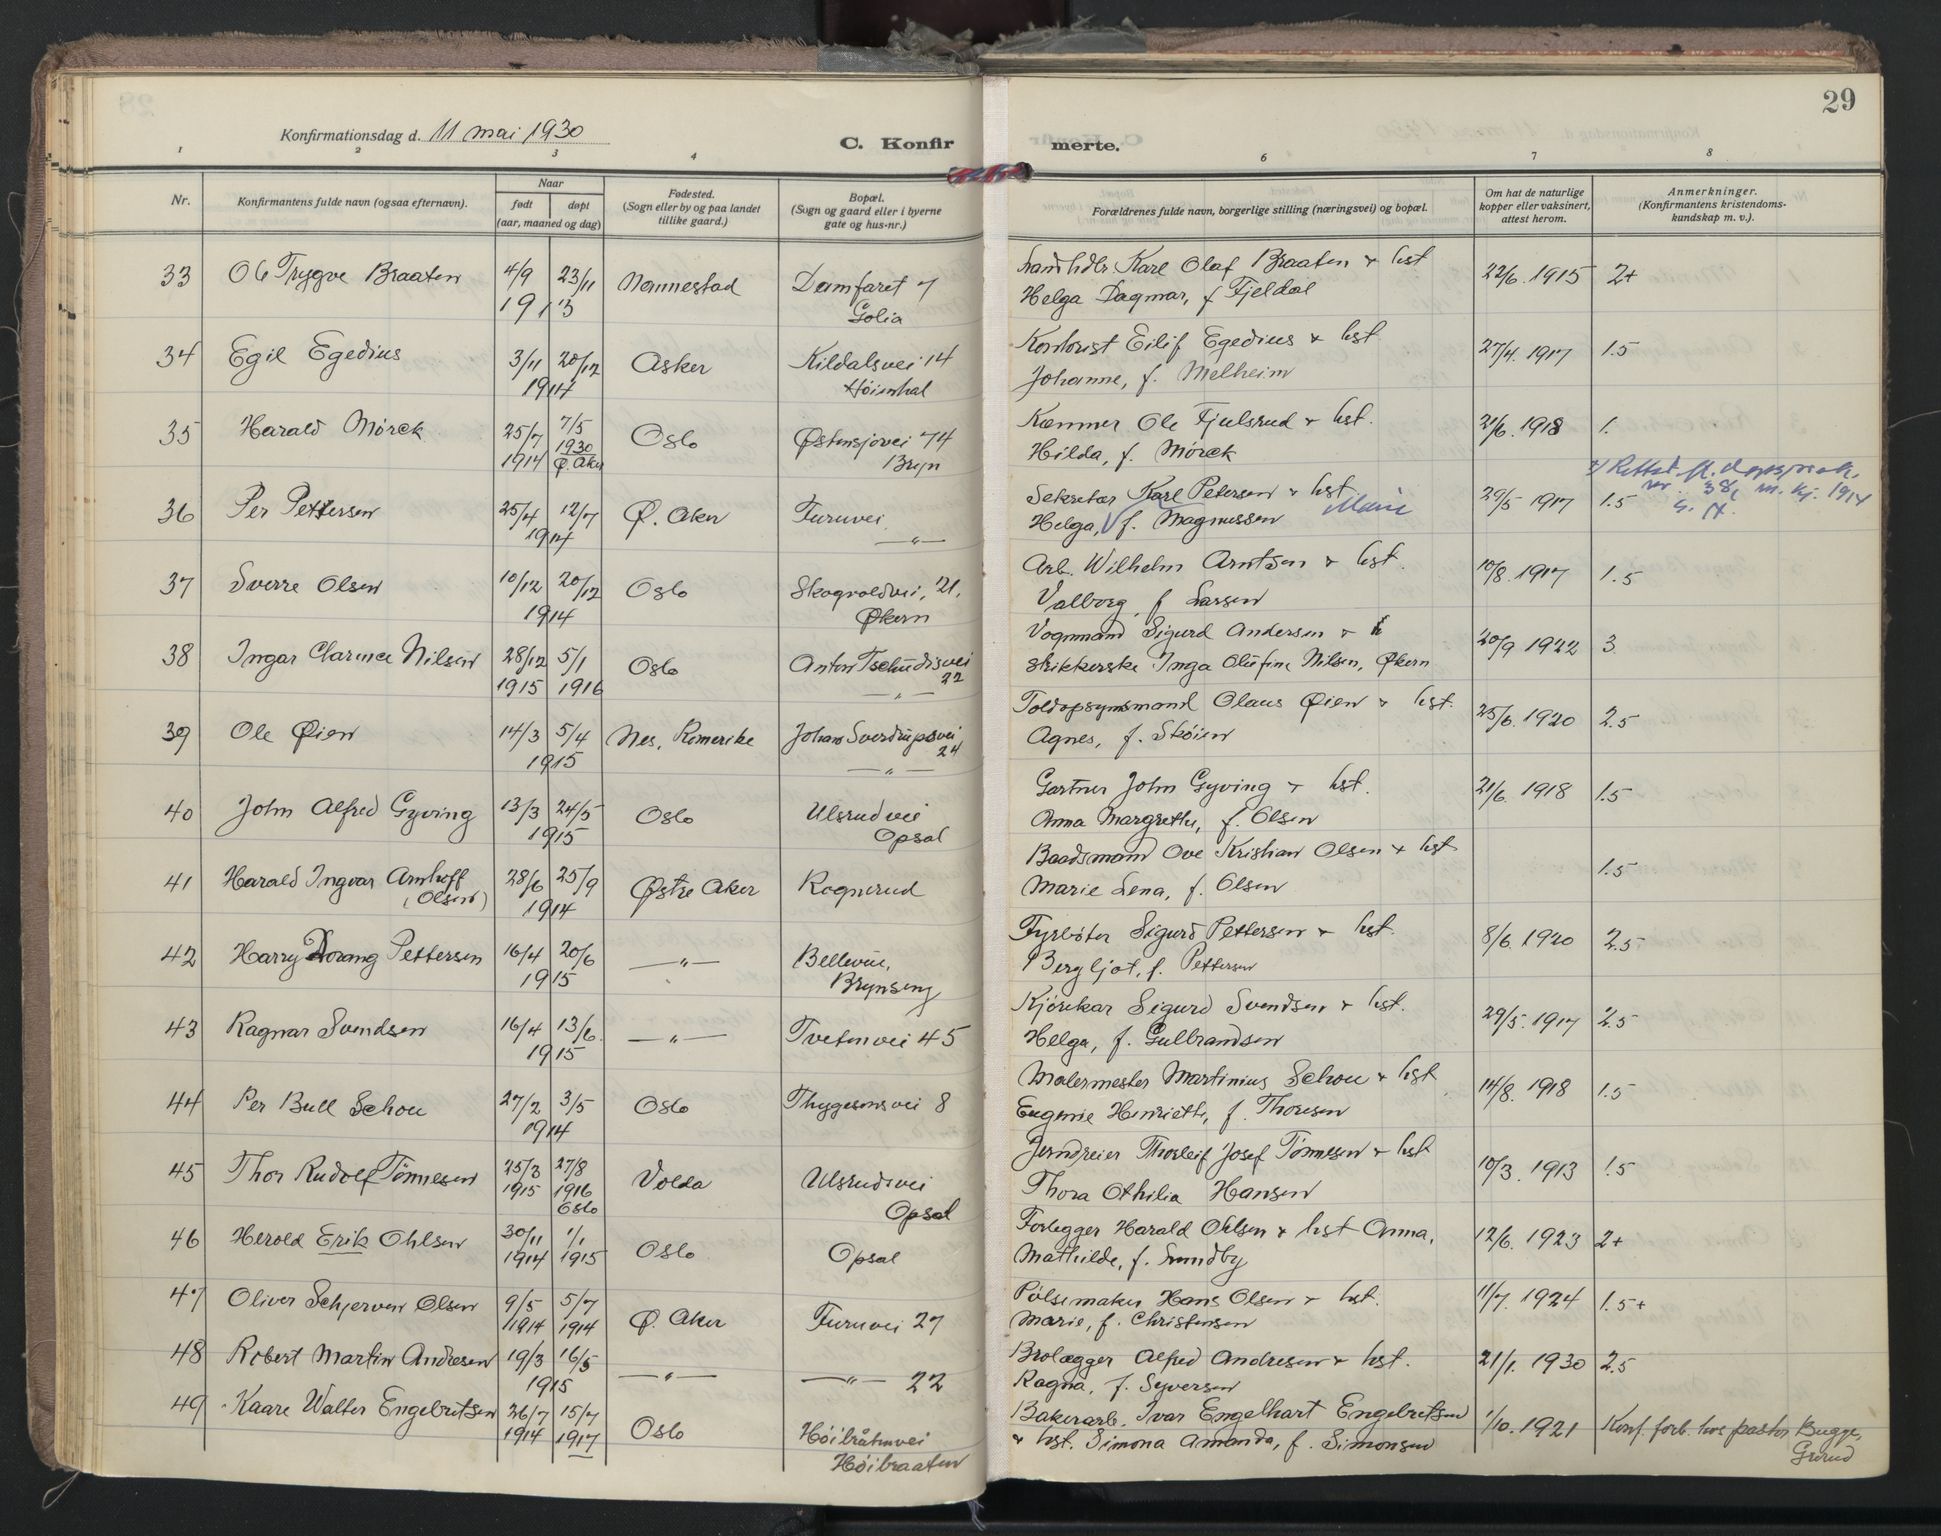 29
Konfirmationsdag d. 11 mai 1930
C. Konfirmerte.
1 2 3 4 5 6 7 8
Nr.
Konfirmantens fulde navn (ogsaa efternavn).
Naar
født døpt
(aar, maaned og dag)
Fødested.
(Sogn eller by og paa landet
tillike gaard.)
Bopæl.
(Sogn og gaard eller i byerne
gate og hus-nr.)
Forældrenes fulde navn, borgerlige stilling (næringsvei) og bopæl.
Om hat de naturlige
kopper eller vaksinert,
attest herom.
Anmerkninger.
(Konfirmantens kristendoms-
kundskap m. v.).
33 Ole Trygve Braaten 4/9 23/11 Nannestad Damfaret 7 Landhdlr Karl Olaf Braaten & hst 22/6. 1915 2+
1913 Golia Helga Dagmar, f Fjeldal
34 Egil Egedius 3/11 20/12 Asker Kildalsvei 14 Kontorist Eilif Egedius & hst. 27/4. 1917 1.5
1914 Høienhal Johanne, f. Melheim
35 Harald Mörck 25/7 7/5 Oslo Østensjøvei 74 Kæmner Ole Fjulsrud & hst. 21/6. 1918 1.
1914 1930 Ø. Aker Bryn Hilda, f. Mörck
36 Per Pettersen 25/4 12/7 Ø. Aker Furuvei Sekretær Karl Petersen & hst 29/5 1917 1.5
1914 —„— Helga, f. Magnussen Marie
37 Sverre Olsen 10/12 20/12 Oslo Skogvoldvei, 21, Arb. Wilhelm Arntsen & hst. 10/8. 1917 1.5
1914 Økern Valborg, f Larsen
38 Ingar Clarence Nilsen 28/12 5/1 Oslo Anton Tschudisvei Vognmand Sigurd Andersen & h 20/9 1922 3
1915 1916 22 —„— strikkerske Inga Olufine Nilsen, Økern
39 Ole Øien 14/3 5/4 Nes, Romerike Johan Sverdrupsvei Toldopsynsmand Olaus Øien & hst. 25/6. 1920 2.5
1915 24 —„— Agnes, f. Skøien
40 John Alfred Gyving 13/3 24/5 Oslo Ulsrudvei Gartner John Gyving & hst. 21/6. 1918 1.5
1915 Opsal Anna Margrethe, f. Olsen
41 Harald Ingvar Arnhoff 28/6 25/9 Østre Aker Rognerud Baadsmand Ove Kristian Olsen & hst 1.5
(Olsen) 1914 Marie Lena, f. Olsen
42 Harry Dorang Pettersen 16/4 20/6 —„— Bellevue, Fyrbøter Sigurd Pettersen & hst. 8/6. 1920 2.5
1915 Brynseng Bergljot, f. Pettersen
43 Ragnar Svendsen 16/4 13/6. —„— Tvetenvei 45 Kjørekar Sigurd Svendsen & hst. 29/5. 1917 2.5
1915 Helga, f. Gulbrandsen
44 Per Bull Schou 27/2 3/5 Oslo Thygesonsvei 8 Malermester Martinius Schou & hst 14/8. 1918 1.5
1914 Eugenie Henriette, f. Thoresen
45 Thor Rudolf Tönnesen 25/3 27/8 Volda Ulsrudvei Jerndreier Thorleif Josef Tönnesen & hst 10/3. 1913 1.5
1915 1916 Oslo Opsal Thora Othilia Hansen
46 Herold Erik Ohlsen 30/11 1/1 Oslo Opsal Forlegger Harald Ohlsen & hst Anna, 12/6. 1923 2+
1914 1915 Mathilde, f. Lundby
47 Oliver Schjerven Olsen 9/5 5/7 Ø. Aker Furuvei 27 Pølsemaker Hans Olsen & hst. 11/7. 1924 1.5+
1914 1914 Marie, f. Christensen
48 Robert Martin Andresen 19/3 16/5 —„— —„— 22 Brolægger Alfred Andresen & hst. 21/1. 1930 2.5
1915 Ragna, f. Syversen
49 Kaare Walter Engebretsen 26/7 15/7 Oslo Høibråtenvei Bakerarb. Ivar Engelhart Engebretsen 1/10. 1921 Konf. forb. hos pastor Bugge,
1914 1917 Høibraaten & hst. Simona Amanda, f. Simonsen Grorud